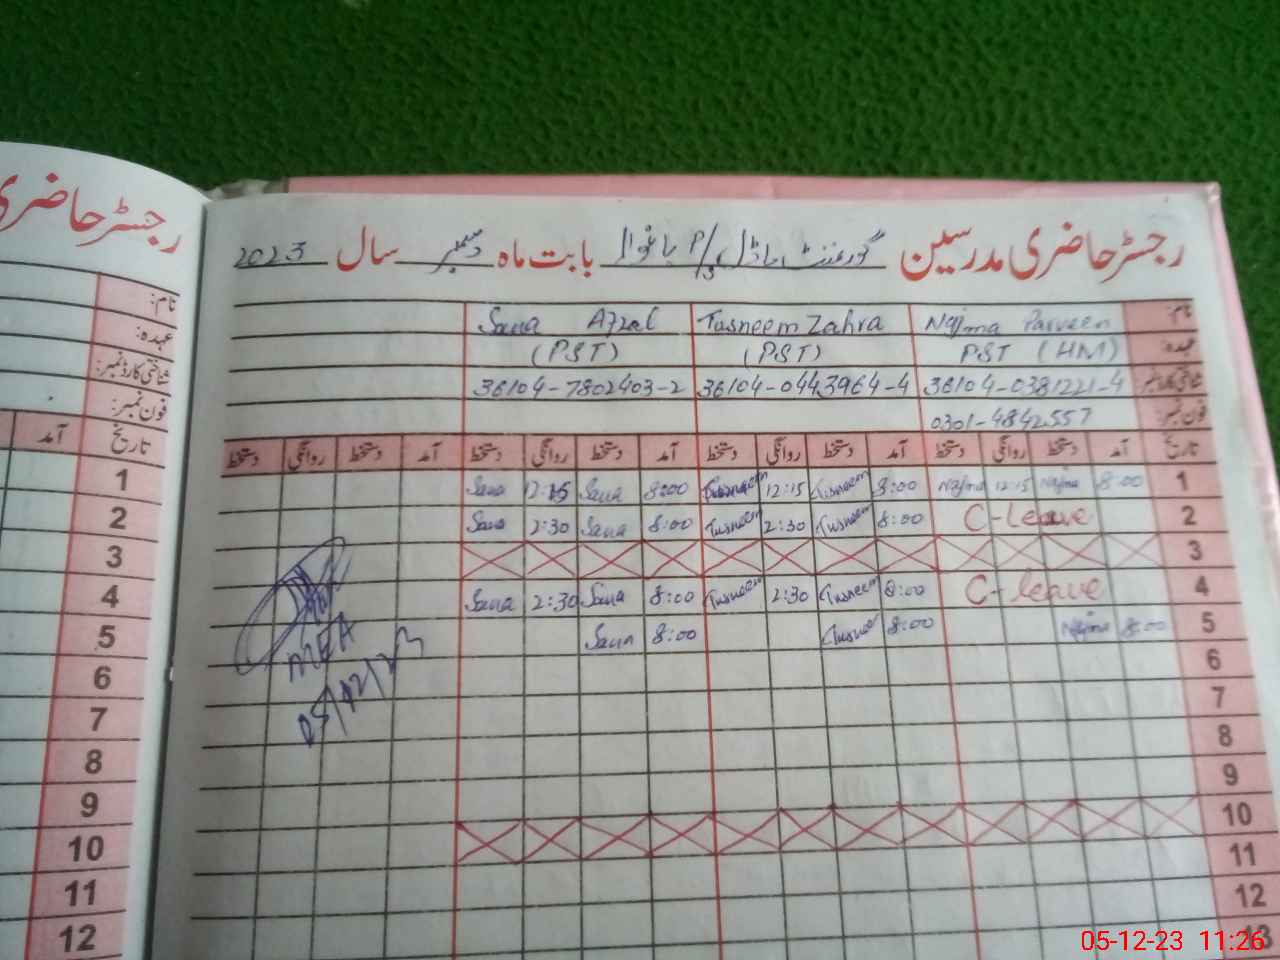 رجسٹر حاضری
نام:
عہدہ:
شناختی کارڈ نمبر:
فون نمبر:
آمد تاریخ
1
2
3
4
5
6
7
8
9
10
11
12
رجسٹر حاضری مدرسین گورنمنٹ ماڈل P/S بابت ماہ دسمبر سال 2023
نام: Najma Parveen Tasneem Zahra Sana Afzal
عہدہ: PST (HM) (PST) (PST)
شناختی کارڈ نمبر: 36104-0381221-4 36104-0443964-4 36104-7802403-2
فون نمبر: 0301-4842557
تاریخ آمد دستخط روانگی دستخط آمد دستخط روانگی دستخط آمد دستخط روانگی دستخط آمد دستخط روانگی دستخط
1 8:00 Najma 12:15 Najma 8:00 Tusneem 12:15 Tusneem 8:00 Sana 12:15 Sana
2 C-leave 8:00 Tusneem 2:30 Tusneem 8:00 Sana 2:30 Sana
3
4 C-leave 8:00 Tusneem 2:30 Tusneem 8:00 Sana 2:30 Sana
5 8:00 Najma 8:00 Tusneem 8:00 Sana
6
7
8
9
10
11
12
13
MEA
05/12/23
05-12-23 11:26